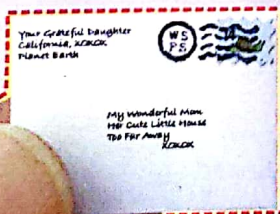 Your Grateful Daughter
California, xoxox
Planet Earth
W S
P S
My Wonderful Mom
Her Cute Little House
Too Far Away
xoxox